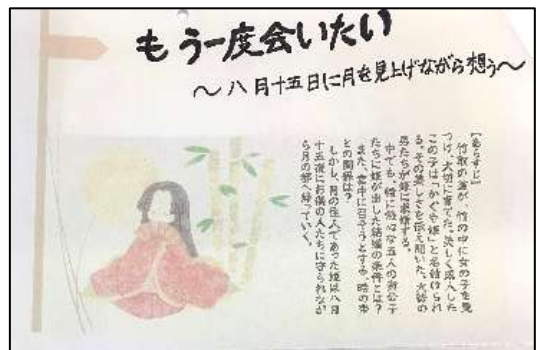 もう一度会いたい
〜八月十五日に月を見上げながら想う〜
【あらすじ】
竹取の翁が、竹の中に女の子を見
つけ、大切に育てた。美しく成人した
この子は「かぐや姫」と名付けられ
る。その美しさを伝え聞いた、大勢の
男たちが姫に求婚する。
中でも、特に熱心な五人の貴公子
たちに姫が出した結婚の条件とは？
また、宮中に召そうとする、時の帝
との関係は？
しかし、月の住人であった姫は八月
十五夜にお供の人たちに守られなが
ら月の都へ帰っていく。